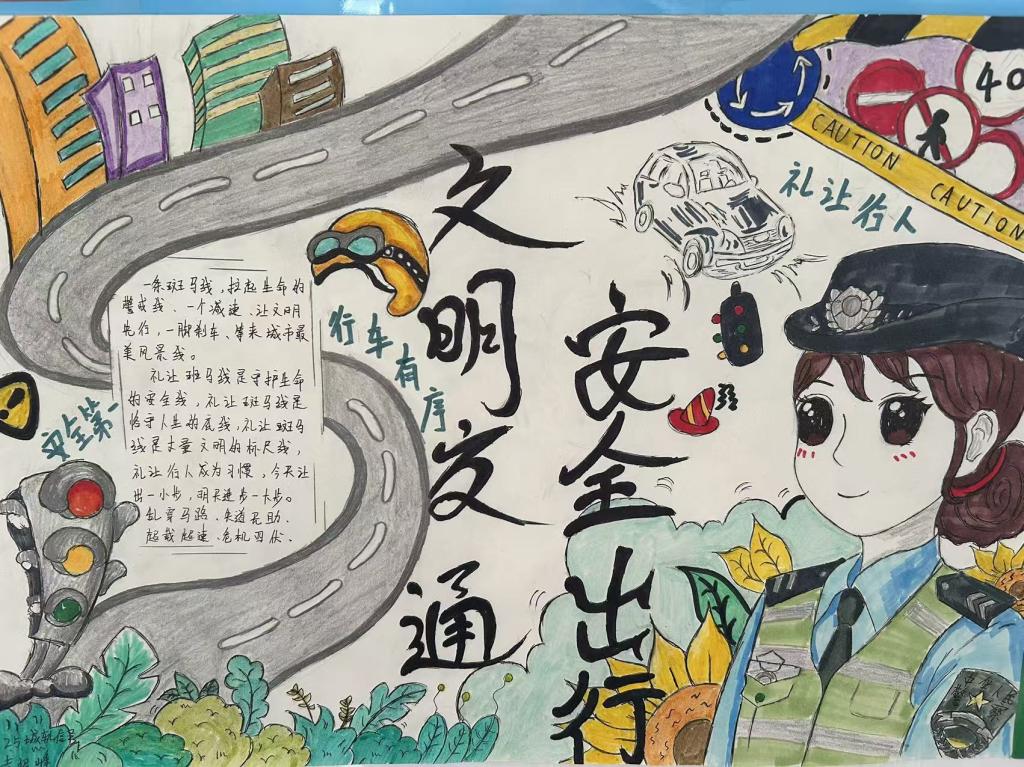 文明交通
安全出行
礼让行人
行车有序
安全第一
CAUTION CAUTION
40
一条斑马线，拉起生命的
警戒线、一个减速、让文明
先行，一脚刹车、带来城市最
美风景线。
礼让斑马线是守护生命
的安全线，礼让斑马线是
恪守人生的底线，礼让斑马
线是丈量文明的标尺线，
礼让行人成为习惯，今天让
出一小步，明天进步一大步。
乱穿马路、失道无助、
超载超速、危机四伏、